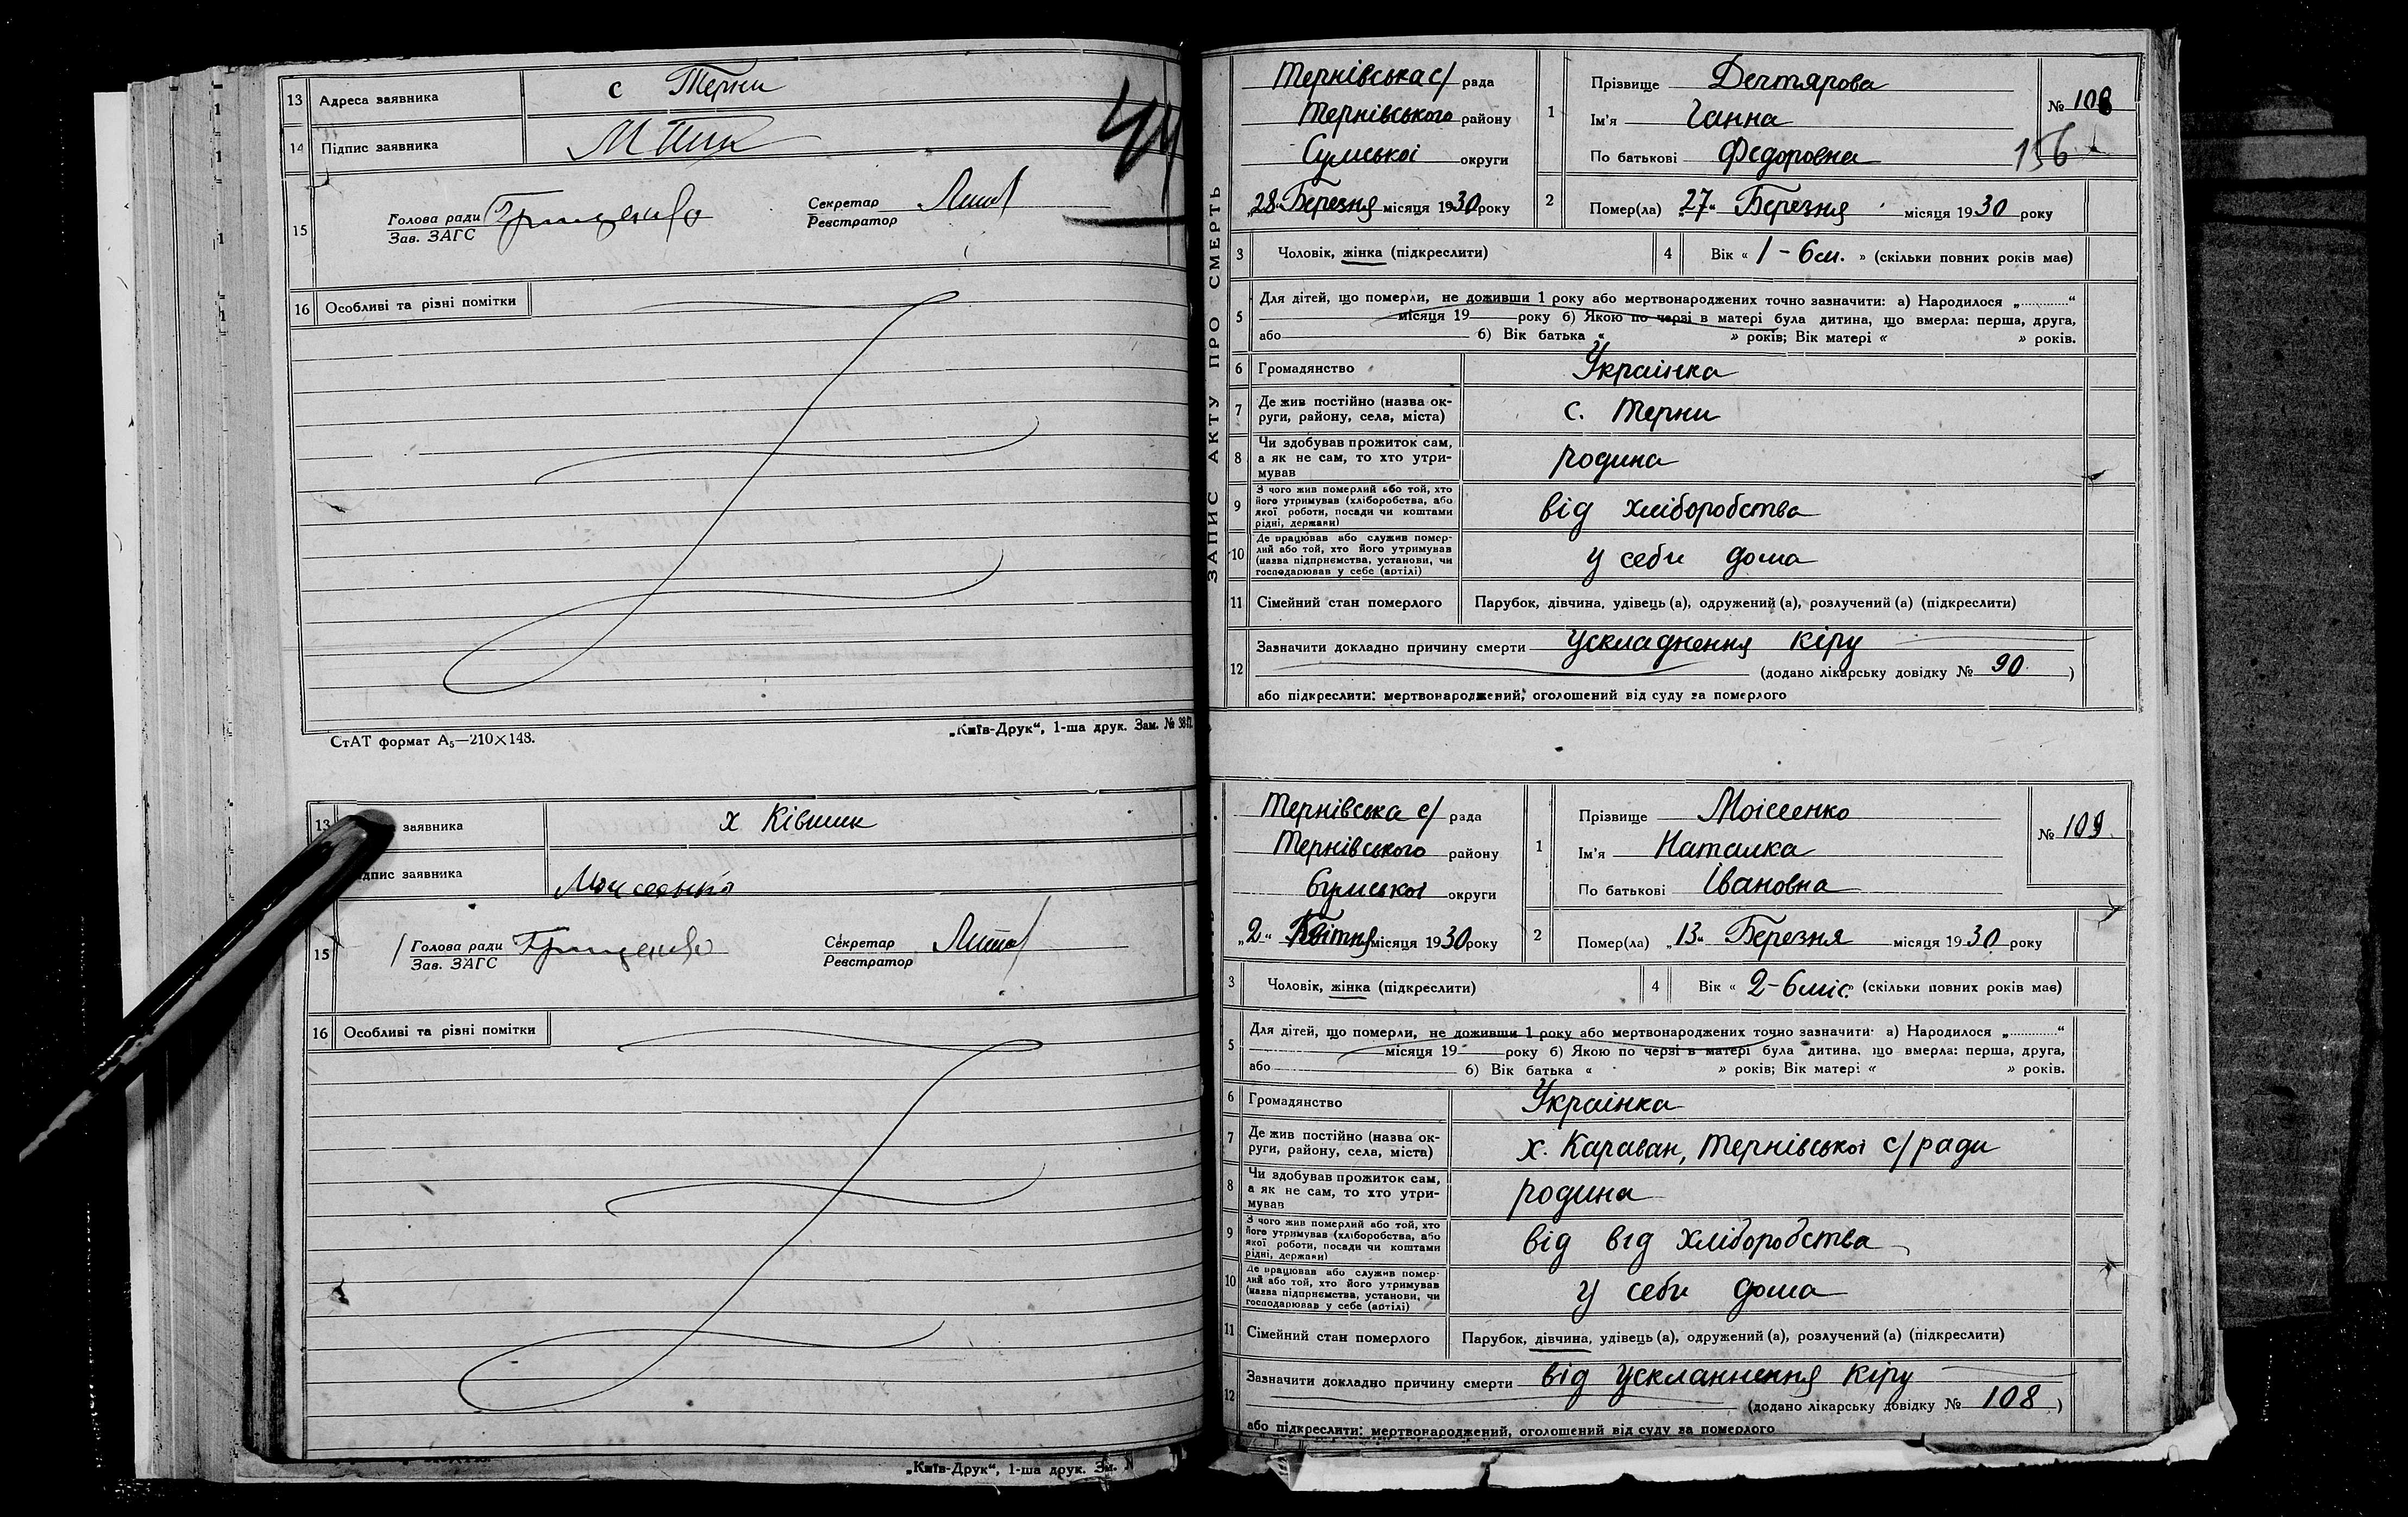 13 Адреса заявника с Терни
14 Підпис заявника
15 Голова ради Грищенко Секретар
Зав. ЗАГС Реєстратор
16 Особливі та різні помітки
СтАТ формат А5—210×148. „Київ-Друк“, 1-ша друк. Зам. №
13 заявника х Ківшик
підпис заявника Моисеенко
15 Голова ради Грищенко Секретар
Зав. ЗАГС Реєстратор
16 Особливі та різні помітки
„Київ-Друк“, 1-ша друк. Зм. №
ЗАПИС АКТУ ПРО СМЕРТЬ
Тернівська с/ рада
Тернівського району
Сумської округи
„28“ Березня місяця 1930 року
1 Прізвище Дегтярова
Ім'я Ганна
По батькові Федоровна
№ 108
156
2 Помер(ла) „27“ Березня місяця 1930 року
3 Чоловік, жінка (підкреслити) 4 Вік « 1-6 м. » (скільки повних років має)
5 Для дітей, що померли, не доживши 1 року або мертвонароджених точно зазначити: а) Народилося „..........“
місяця 19 року б) Якою по черзі в матері була дитина, що вмерла: перша, друга,
або б) Вік батька « » років; Вік матері « » років.
6 Громадянство Українка
7 Де жив постійно (назва ок-
руги, району, села, міста) с. Терни
8 Чи здобував прожиток сам,
а як не сам, то хто утри-
мував родина
9 З чого жив померлий або той, хто
його утримував (хліборобства, або
якої роботи, посади чи коштами
рідні, держави) від хліборобства
10 Де працював або служив помер-
лий або той, хто його утримував
(назва підприємства, установи, чи
господарював у себе (артілі) у себи дома
11 Сімейний стан померлого Парубок, дівчина, удівець (а), одружений (а), розлучений (а) (підкреслити)
12 Зазначити докладно причину смерти Ускладнення кіру
(додано лікарську довідку № 90 )
або підкреслити: мертвонароджений, оголошений від суду за померлого
Тернівська с/ рада
Тернівського району
Сумської округи
„2“ Квітня місяця 1930 року
1 Прізвище Моісеенко
Ім'я Наталка
По батькові Івановна
№ 109
2 Помер(ла) „13“ Березня місяця 1930 року
3 Чоловік, жінка (підкреслити) 4 Вік « 2-6 міс. » (скільки повних років має)
5 Для дітей, що померли, не доживши 1 року або мертвонароджених точно зазначити: а) Народилося „..........“
місяця 19 року б) Якою по черзі в матері була дитина, що вмерла: перша, друга,
або б) Вік батька « » років; Вік матері « » років.
6 Громадянство Українка
7 Де жив постійно (назва ок-
руги, району, села, міста) х. Караван, Тернівської с/ради
8 Чи здобував прожиток сам,
а як не сам, то хто утри-
мував родина
9 З чого жив померлий або той, хто
його утримував (хліборобства, або
якої роботи, посади чи коштами
рідні, держави) від від хліборобства
10 Де працював або служив помер-
лий або той, хто його утримував
(назва підприємства, установи, чи
господарював у себе (артілі) у себи дома
11 Сімейний стан померлого Парубок, дівчина, удівець (а), одружений (а), розлучений (а) (підкреслити)
12 Зазначити докладно причину смерти від ускланнення кіру
(додано лікарську довідку № 108 )
або підкреслити: мертвонароджений, оголошений від суду за померлого